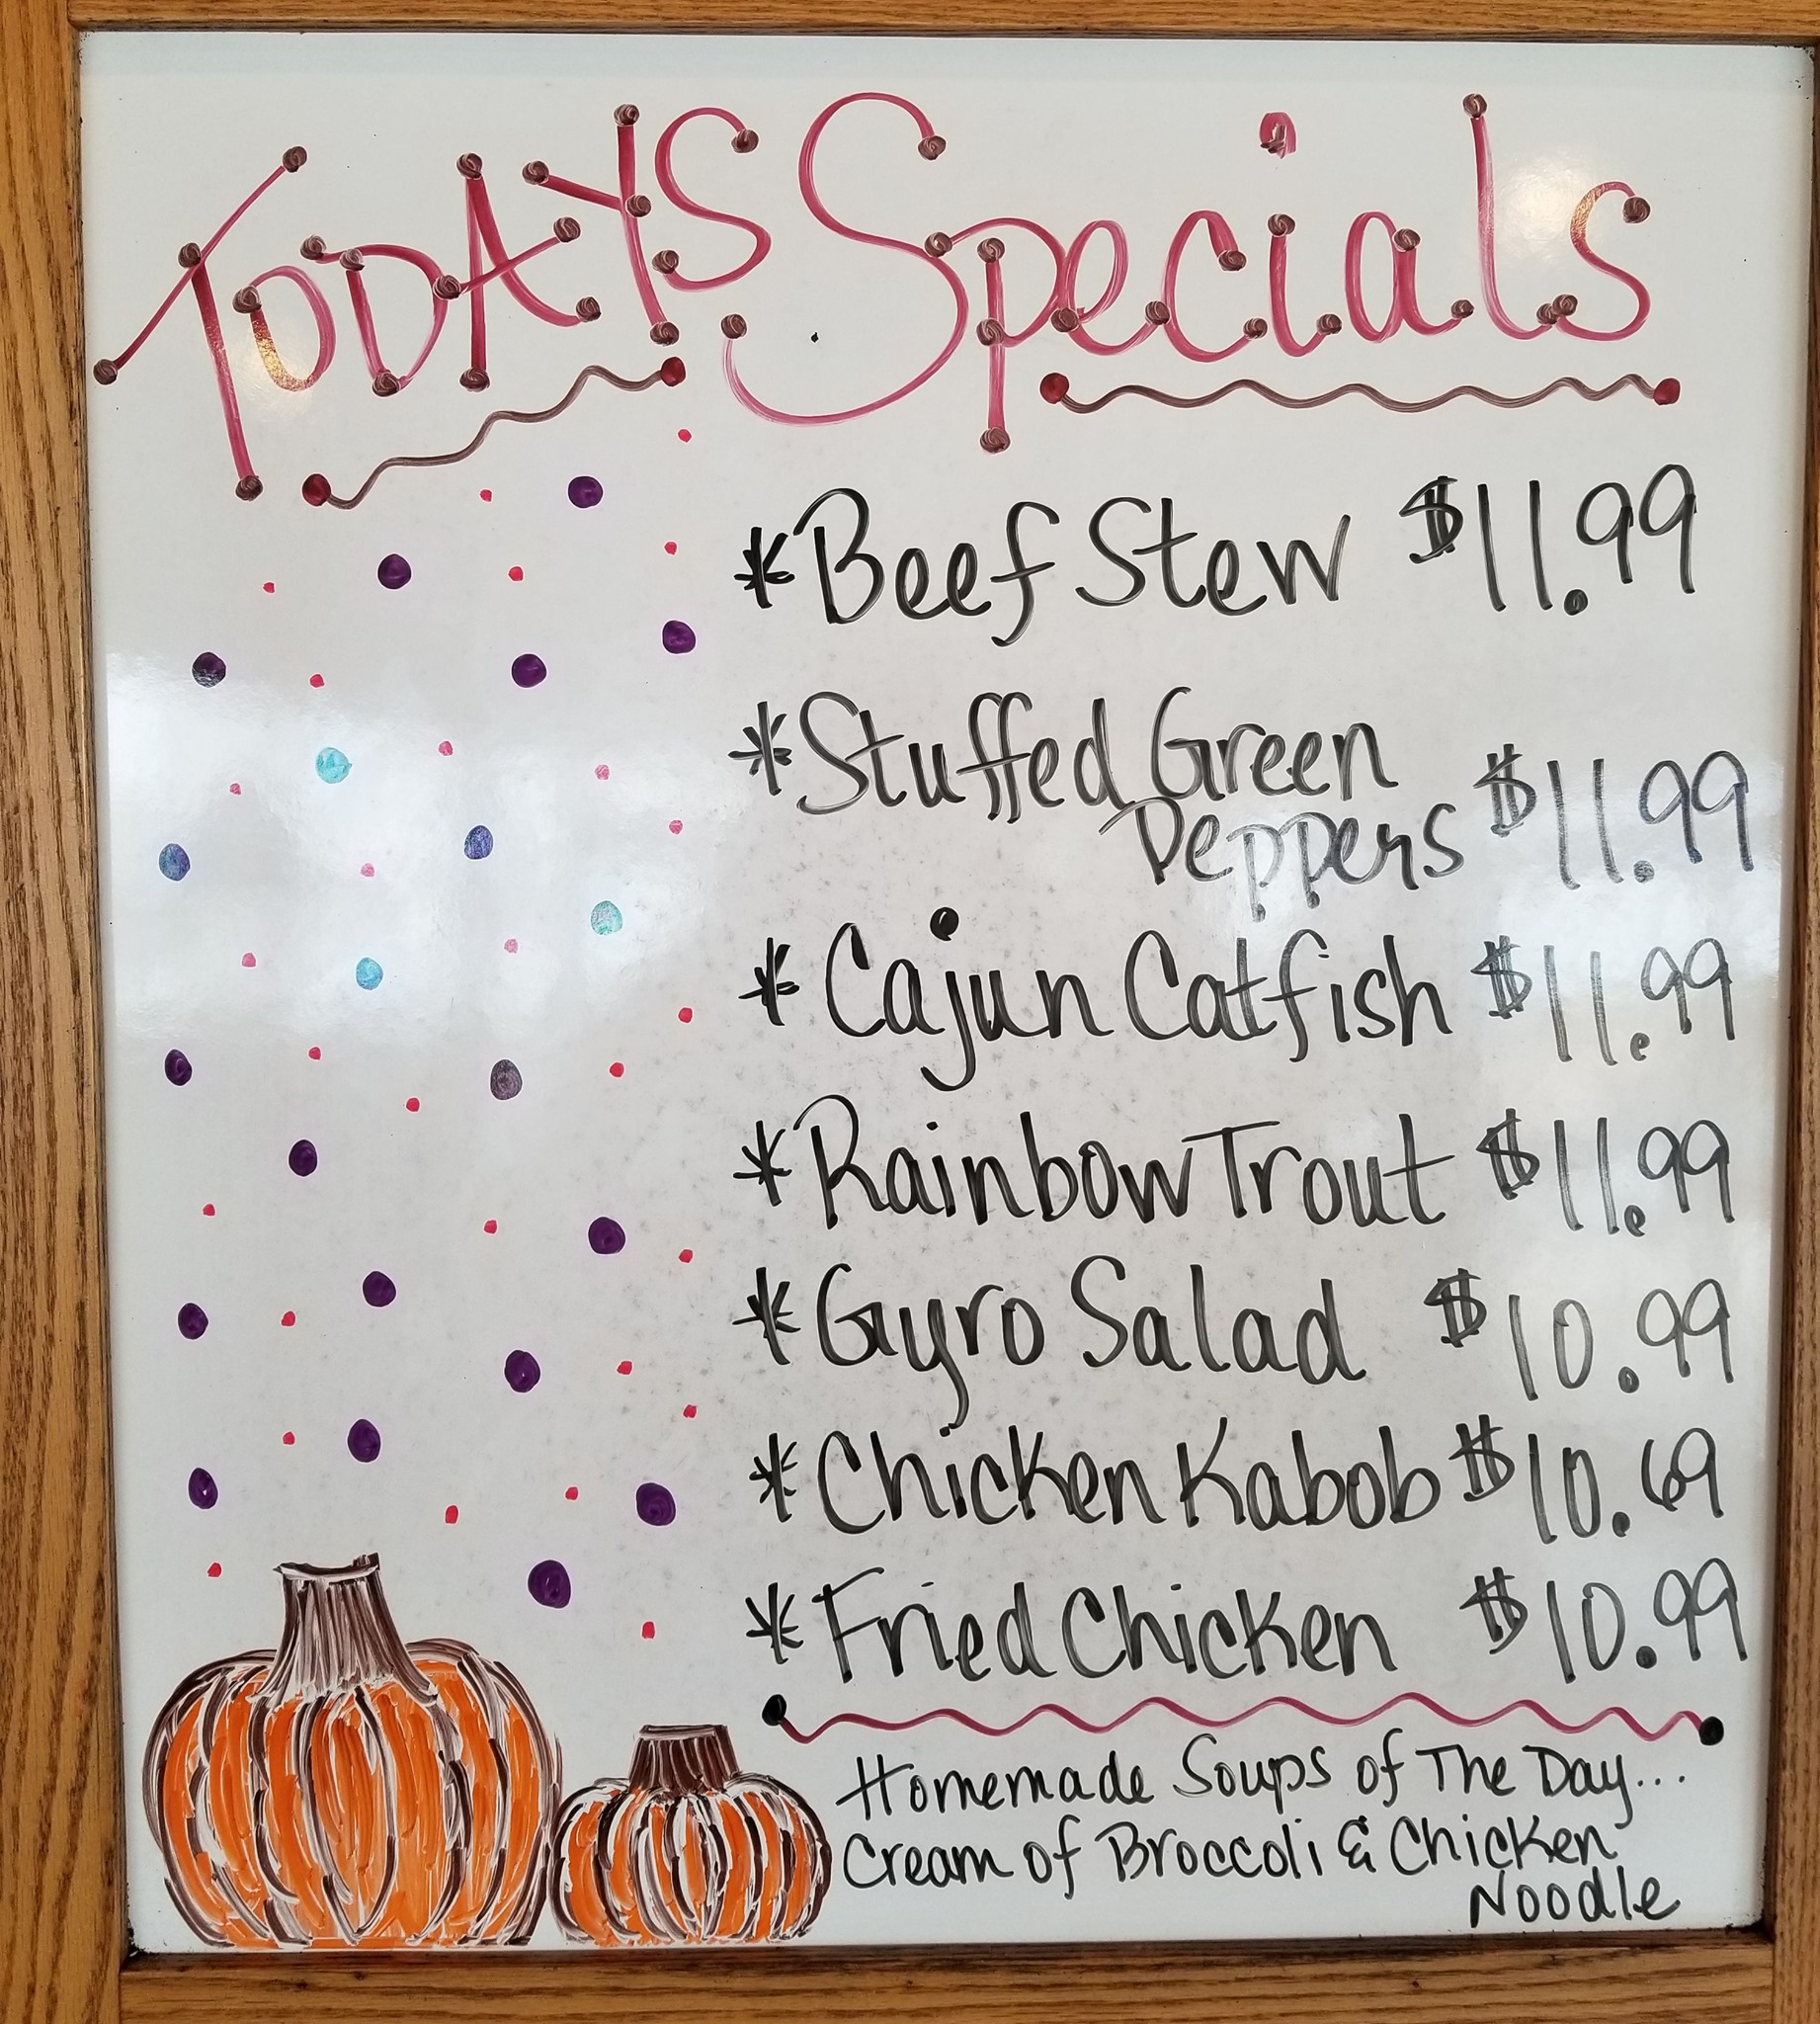 TODAYS Specials
*Beef Stew $11.99
*Stuffed Green
Peppers $11.99
*Cajun Catfish $11.99
*Rainbow Trout $11.99
*Gyro Salad $10.99
*Chicken Kabob $10.69
*Fried Chicken $10.99
Homemade Soups of The Day...
Cream of Broccoli & Chicken
Noodle